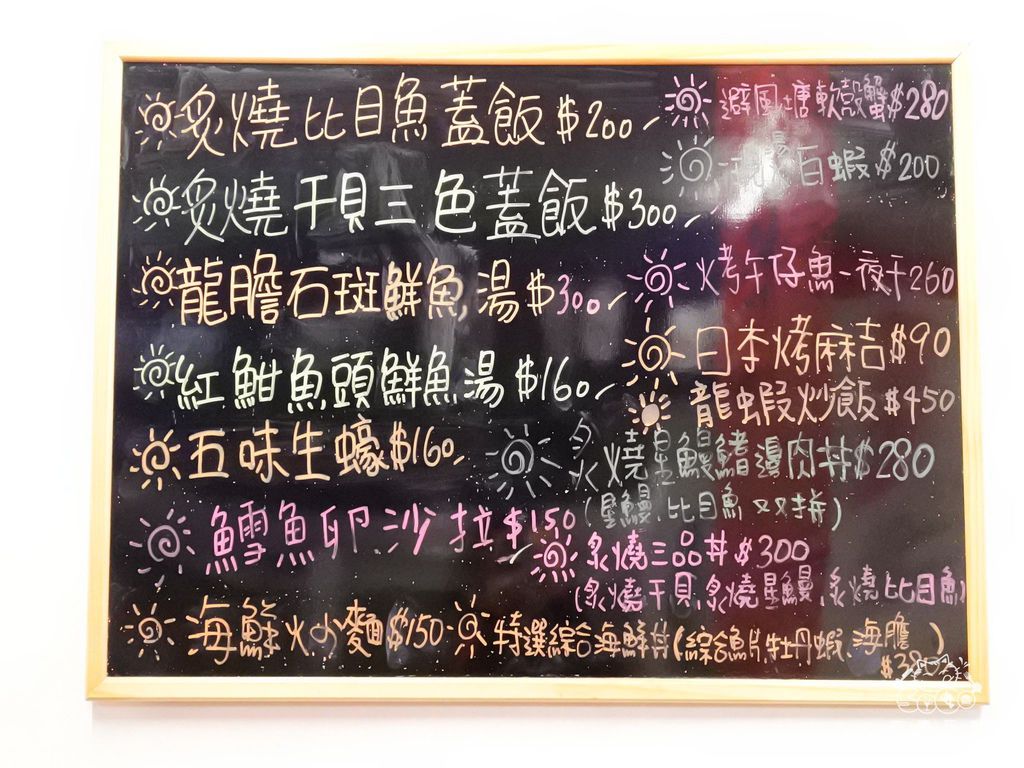 炙燒比目魚蓋飯$200
炙燒干貝三色蓋飯$300
龍膽石斑鮮魚湯$300
紅魽魚頭鮮魚湯$160
五味生蠔$160
鱈魚卵沙拉$150
海鮮炒麵$150
避風塘軟殼蟹$280
白蝦$200
烤午仔魚一夜干260
日本烤麻吉$90
龍蝦炒飯$450
炙燒星鰻鰭邊肉丼$280
(星鰻.比目魚 双拼)
炙燒三品丼$300
(炙燒干貝.炙燒星鰻.炙燒比目魚)
特選綜合海鮮丼(綜合魚片.牡丹蝦.海膽)